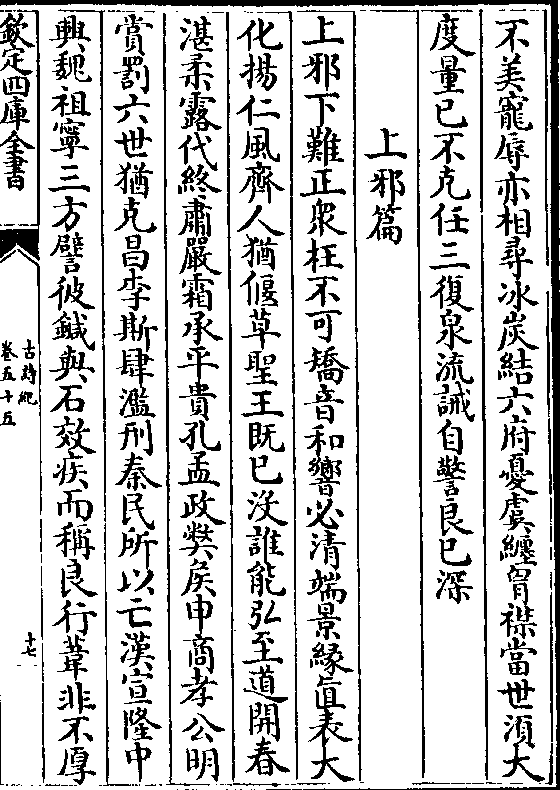 不美寵辱亦相尋冰炭結六府憂虞纏胷襟當世須大
度量已不克任三復泉流誡自警良已深
上邪篇
上邪下難正衆枉不可矯音和響必清端景緣直表大
化揚仁風齊人猶偃草聖王既已沒誰能弘至道開春
湛柔露代終肅嚴霜承平貴孔孟政獘侯申商孝公明
賞罰六世猶克昌李斯肆濫刑秦民所以亡漢宣隆中
興魏祖寧三方譬彼鍼與石效疾而稱良行葦非不厚
欽定四庫全書
古詩紀
卷五十五
十七